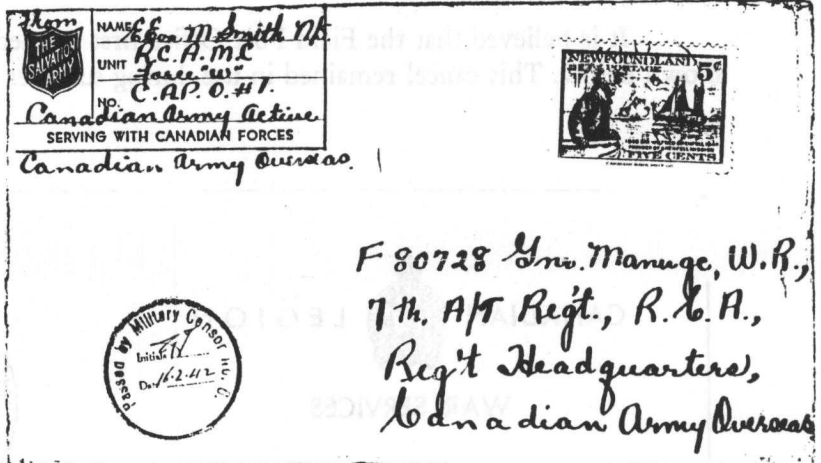 From
THE
SALVATION
ARMY
NAME M. Smith
UNIT R.C.A.M.C.
NO. C.A.P.O. #1.
Canadian Army Active
SERVING WITH CANADIAN FORCES
Canadian Army Overseas.
NEWFOUNDLAND 5¢
FIVE CENTS
F 80728 Gnr. Manuge, W.R.,
7th. A/T Reg't., R.C.A.,
Reg't Headquarters,
Canadian Army Overseas
Passed by Military Censor No. C
Initials
Date 16.2.42
CANADIAN LEGION
WAR SERVICES